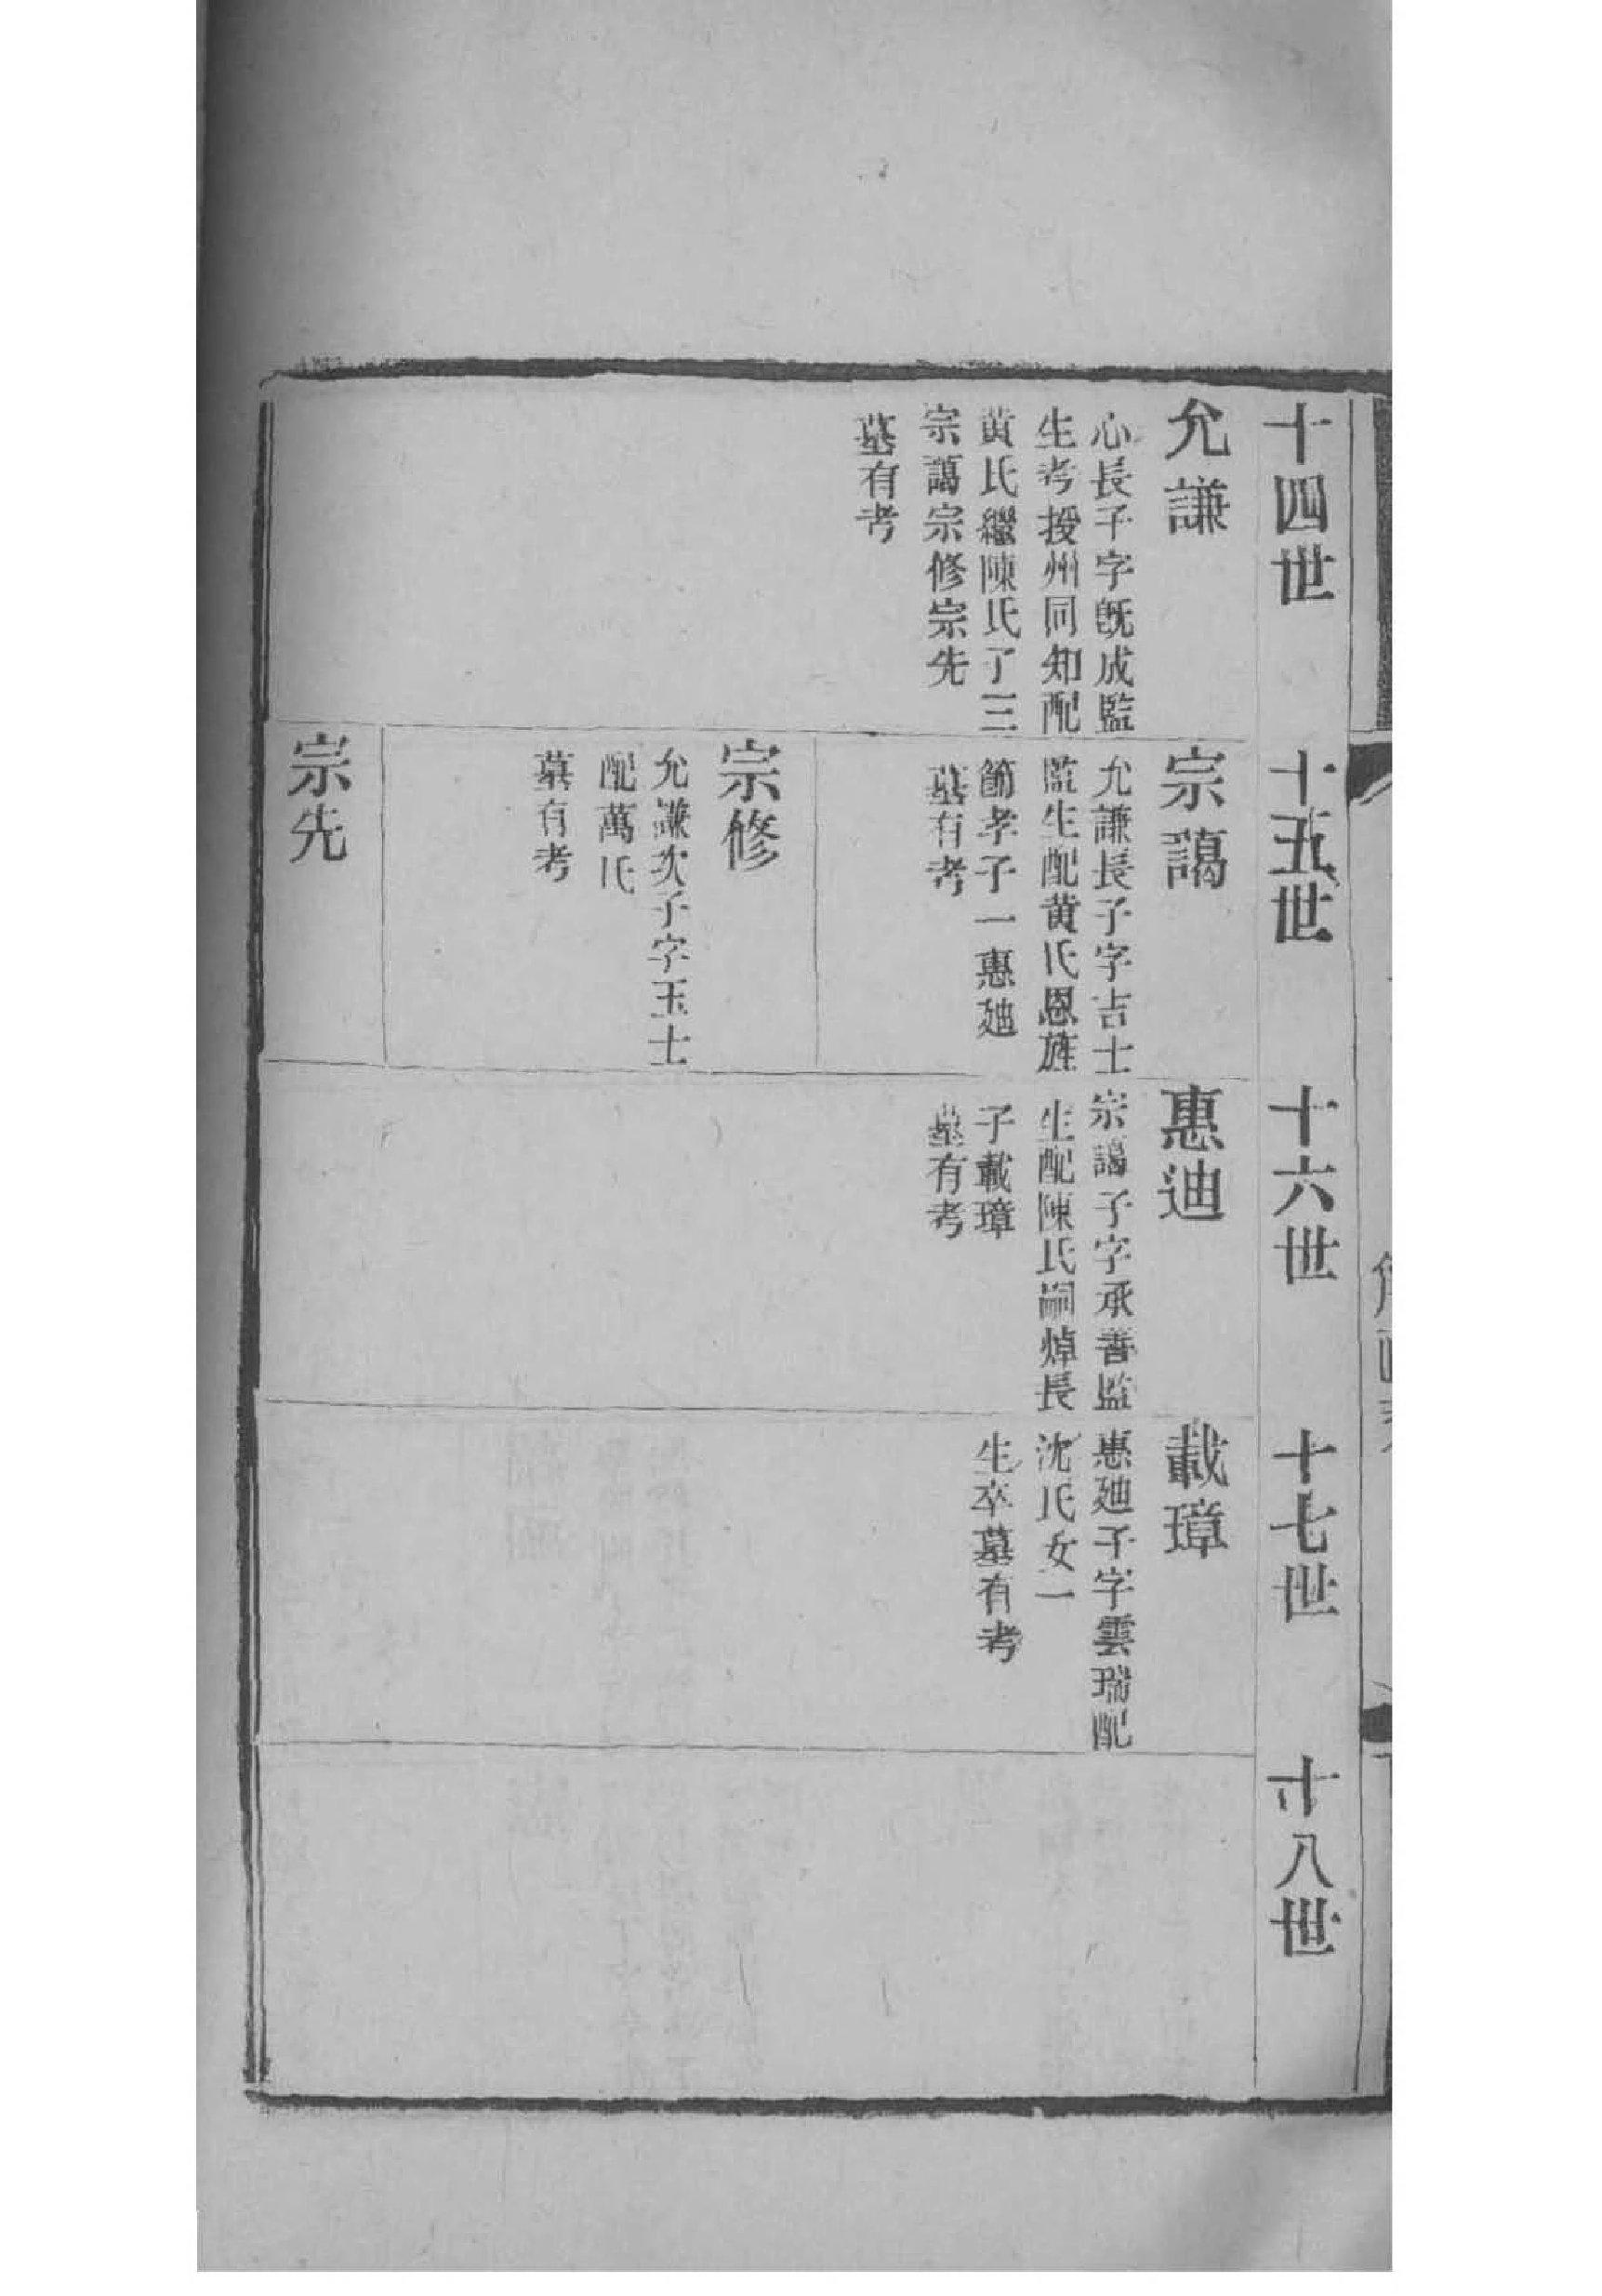 十四世 十五世 十六世 十七世 十八世
允謙
心長子字旣成監
生考授州同知配
黃氏繼陳氏子三
宗譪宗修宗先
墓有考
宗譪
允謙長子字吉士
監生配黃氏恩旌
節孝子一惠廸
墓有考
宗修
允謙次子字玉士
配萬氏
墓有考
宗先
惠迪
宗譪子字承善監
生配陳氏嗣焯長
子載璋
墓有考
載璋
惠廸子字雲瑞配
沈氏女一
生卒墓有考